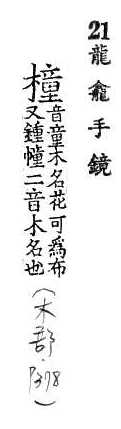 21龍龕手鏡
橦音童木名花可爲布
又鍾幢二音木名也
(木部.P378)